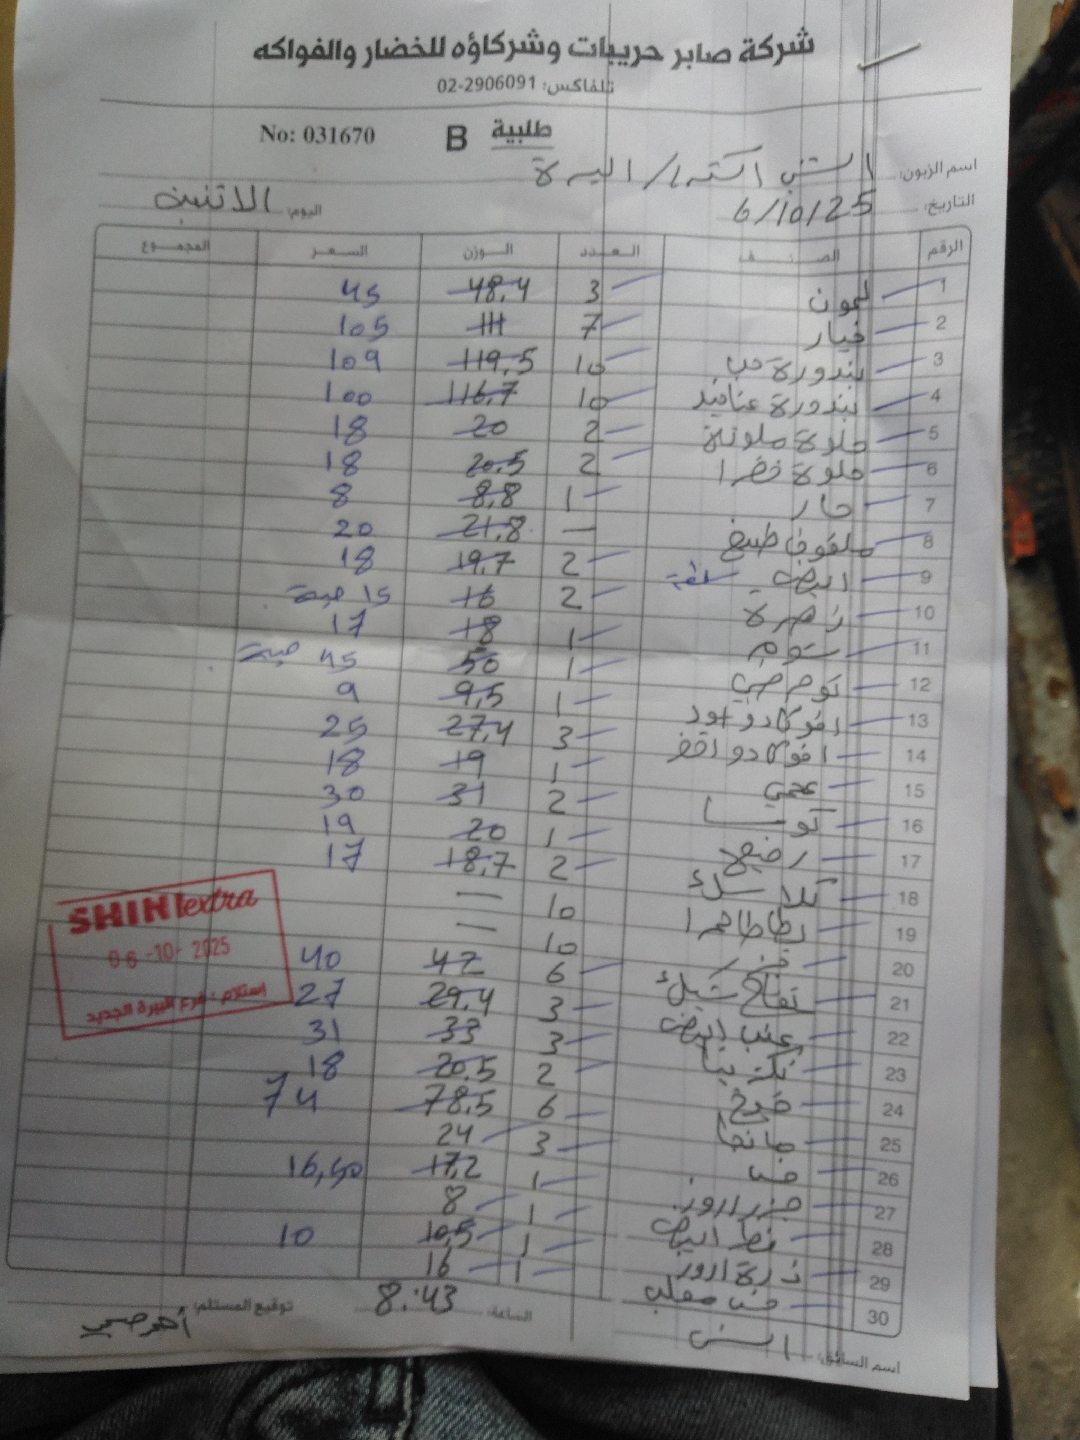 شركة صابر حريبات وشركاؤه للخضار والفواكه
تلفاكس: 02-2906091
No: 031670 B طلبية
اسم الزبون: الشني اكسترا / البيرة
التاريخ: 6/10/25 اليوم: الاثنين
الرقم الصنف العدد الوزن السعر المجموع
1 ليمون 3 48,4 45
2 خيار 7 111 105
3 بندورة حب 10 119,5 109
4 بندورة عناقيد 10 116,7 100
5 حلوة ملونة 2 20 18
6 حلوة خضرا 2 20,5 18
7 حار 1 8,8 8
8 ملفوف طبيخ — 21,8 20
9 ابيض 2 19,7 18
10 زهرة 2 16 15 حبة
11 توم 1 18 17
12 1 50 45 حبة
13 افوكادو 1 9,5 9
14 افوكادو 3 27,4 25
15 1 19 18
16 2 31 30
17 1 20 19
18 2 18,7 17
19 بطاطا حمرا 10 —
20 10 —
21 تفاح 6 42 40
22 عنب ابيض 3 29,4 27
23 3 33 31
24 خوخ 2 20,5 18
25 مانجا 6 78,5 74
26 خس 3 24
27 جزر اروز 1 17,2 16,50
28 ابيض 1 8
29 ذرة اروز 1 10,5 10
30 1 16
SHINI extra
06-10-2025
استلام: فرع البيرة الجديد
اسم السائق: الساعة: 8:43 توقيع المستلم: